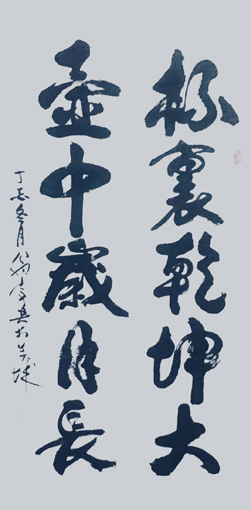 杯裏乾坤大
壺中歲月長
丁亥冬月